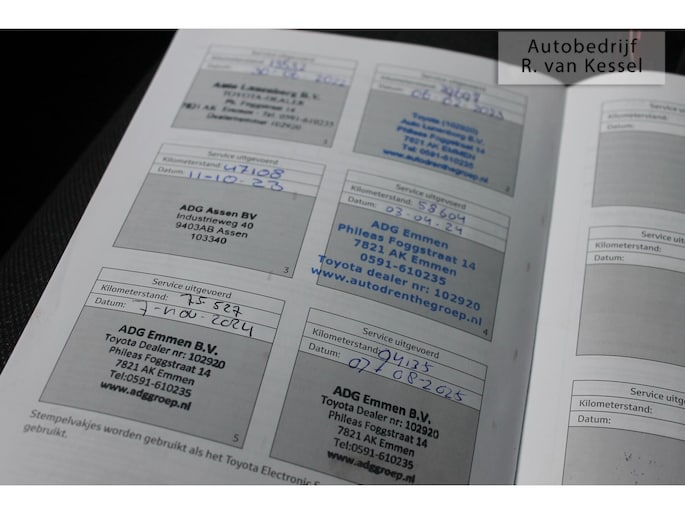 Autobedrijf
R. van Kessel
Service uitgevoerd
30-12-2022
Auto Lunenborg B.V.
TOYOTA-DEALER
Ph. Foggstraat 14
7821 AK Emmen - Tel. 0591-610233
Dealernummer 102920
1
Service uitgevoerd
06 02 2023
Toyota (102920)
Auto Lunenborg B.V.
Phileas Foggstraat 14
7821 AK EMMEN
Tel: 0591-610235
www.autodrenthegroep.nl
2
Service uitgevoerd
Kilometerstand: 47108
Datum: 11-10-23
ADG Assen BV
Industrieweg 40
9403AB Assen
103340
3
Service uitgevoerd
Kilometerstand: 58604
Datum: 03-04-24
ADG Emmen
Phileas Foggstraat 14
7821 AK Emmen
0591-610235
Toyota dealer nr: 102920
www.autodrenthegroep.nl
4
Service uitgevoerd
Kilometerstand: 75 527
Datum: 7-nov-2024
ADG Emmen B.V.
Toyota Dealer nr: 102920
Phileas Foggstraat 14
7821 AK Emmen
Tel:0591-610235
www.adggroep.nl
5
Service uitgevoerd
Kilometerstand: 94135
Datum: 07-08-2025
ADG Emmen B.V.
Toyota Dealer nr: 102920
Phileas Foggstraat 14
7821 AK Emmen
Tel:0591-610235
www.adggroep.nl
Stempelvakjes worden gebruikt als het Toyota Electronic
gebruikt.
Kilometerstand:
Datum:
Service
Kilometerstand:
Datum:
Service
Kilometerstand:
Datum: